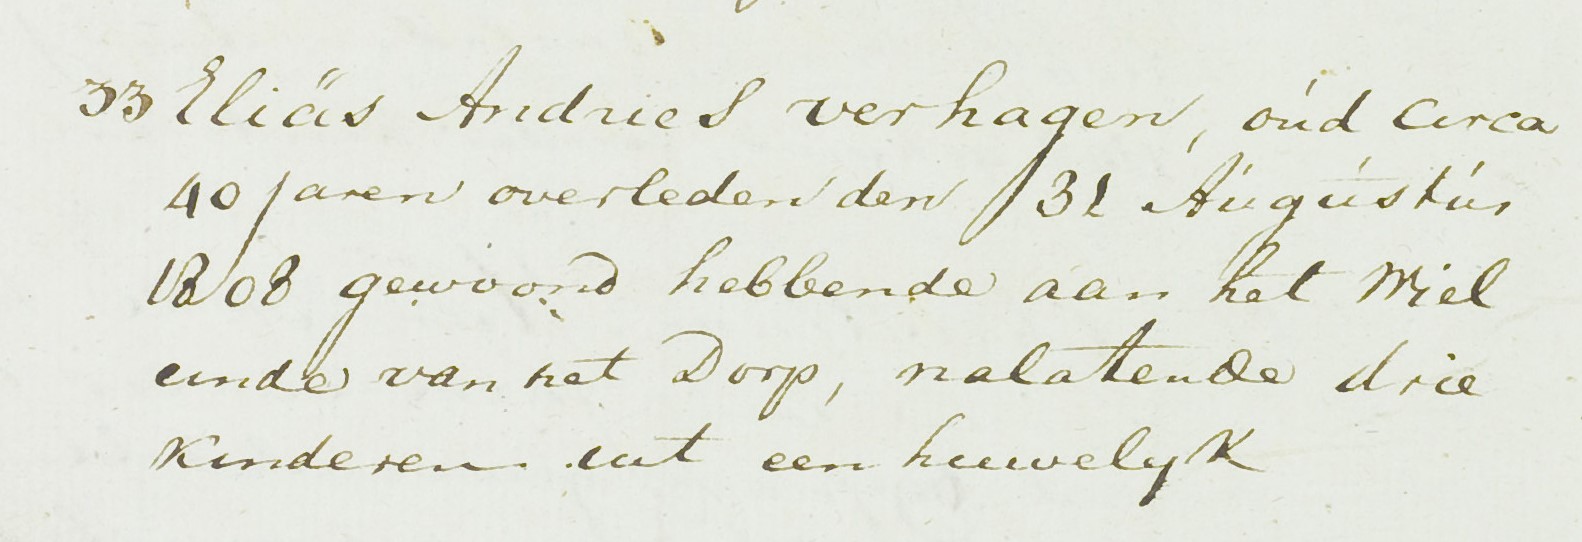 33 Eliäs Andries verhagen, oúd circa
40 jaren overleden den 31 Aúgústús
1808 gewoond hebbende aan het Wiel
einde van het Dorp, nalatende drie
Kinderen uit een huwelyk